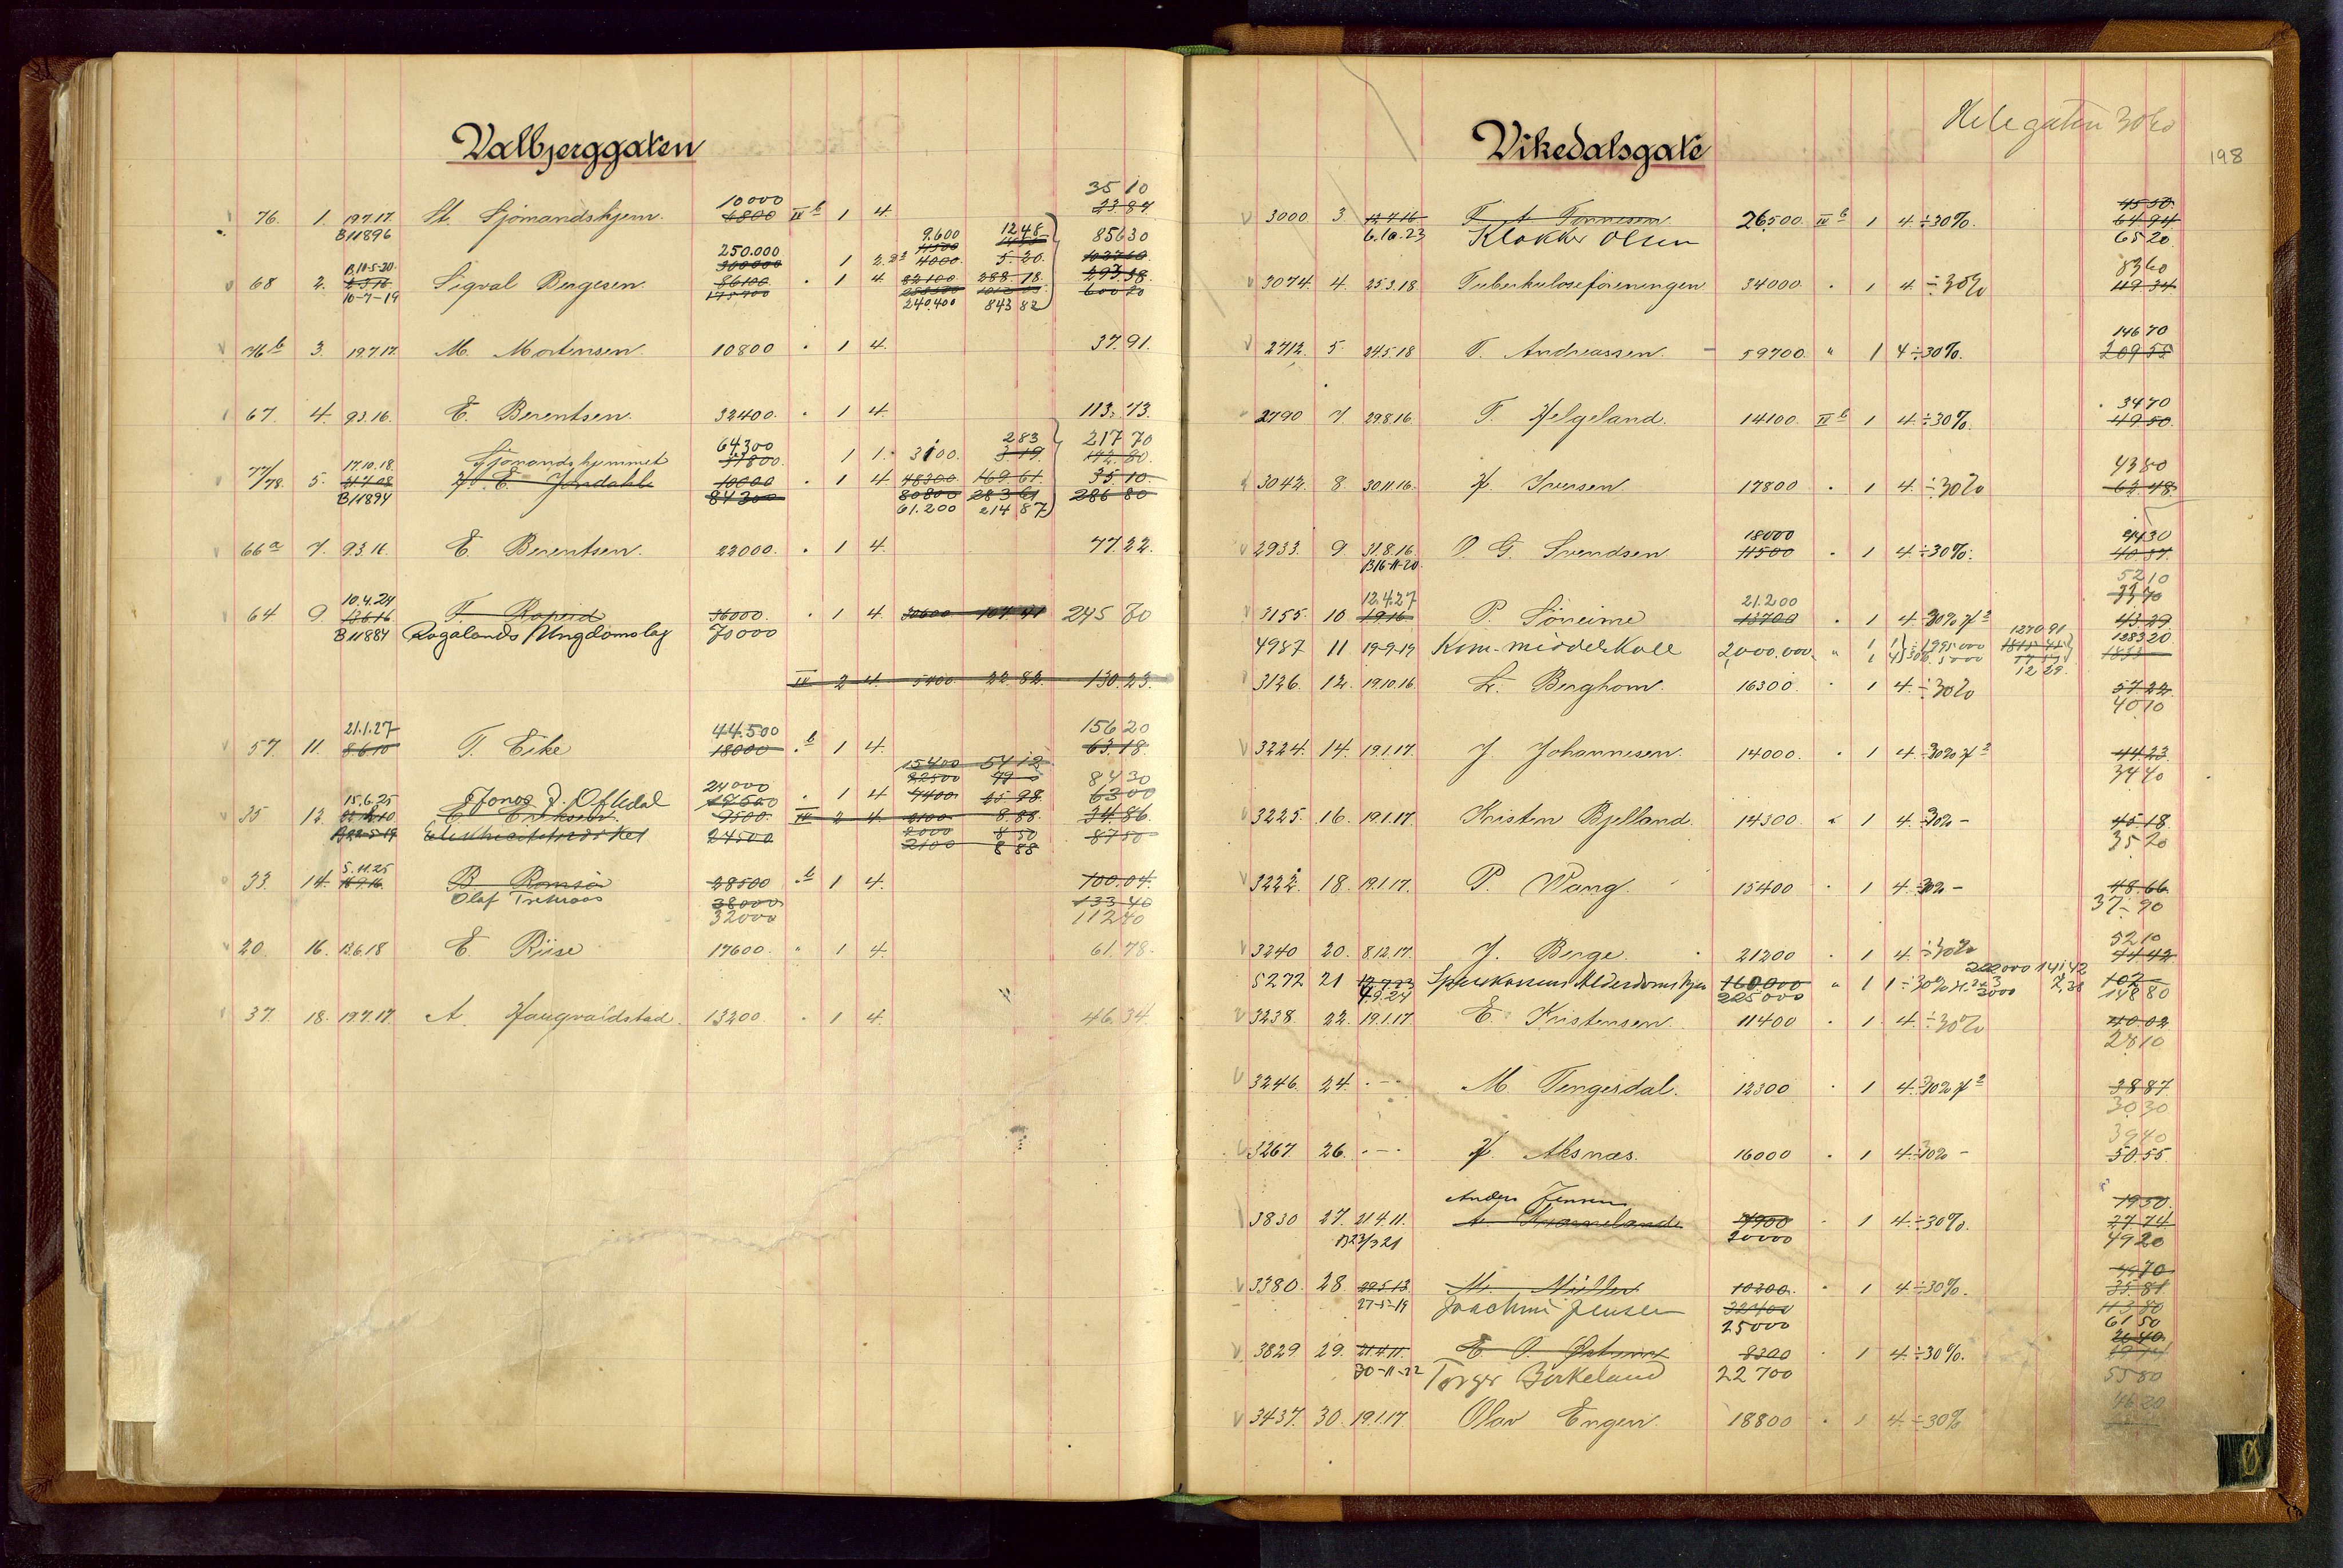 Valbjerggaten
35 10
10000
76. 1. 19.7.17. St. Sjömandshjem. 4800 IV b 1 4. 23.87
B11896
9.600 12.48
250.000 4500 85630
300000 1 2.2² 4000. 5.20.
B.10-5-20.
68 2. 2.3.16 Sigval Bergesen. 86100. . 1 4. 82100 288.18. 293.38.
10-7-19 175700 600 20
240.400 843 82
76b 3. 19.7.17. M. Mortensen. 10800 . 1 4. 37.91.
67. 4. 9.3.16. E. Berentsen. 32400. . 1 4. 113.73.
64.300 283 217 70
Sjømandshjemmet 51800. 1 1. 3100. 3.19 172.80.
17.10.18.
77/78. 5. 31.7.08 J. E. Jondahl 10000 . 1 4. 48300 169.61. 35.10.
B11894 84300 80800 283 61 286 80
61.200 214 87
66a 7. 9.3.16. E. Berentsen. 22000. . 1 4. 77.22.
10.4.24
64 9. 13.6.16 T. Rapeid 36000. . 1 4. 30600 107.41 245 70
B11884 Rogalands Ungdomslag 70000
IV 2 4. 5400. 22.82. 130.23.
21.1.27 44.500 156 20
57. 11. 8.6.10 T. Eike 18000 . b 1 4. 63.18.
15400 54 12
24000 22500 79 8430
15.6.25 Jonas J. Oftedal 17500 . 1 4 7400. 25.98. 6300
35 12. E. Eriksen. 9500. IV 2 4. 2100. 8.88. 34.86.
B22-5-19 Elektricitetsværket 24500 2000 8 50 8750
2100 8 88
5.11.25
33. 14. B. Romsöe 28500 . b 1 4. 100.04.
Olaf 38000 133 40
32000 11240
20. 16. 13.6.18 E. Riise 17600. " 1 4. 61.78.
37. 18. 19.7.17. A. Haugvaldstad. 13200. . 1 4. 46.34.
Helegaten 30%
Vikedalsgate
198
45 50.
3000 3. 12.7.16 T. A. Tönnesen 26500. IV b 1 4. ÷30%. 64 94
6.10.23 Klokker Olsen 65 20
8360
3074. 4. 25.3.18 Tuberkuloseforeningen 34000. . 1 4. ÷30% 119 34
14670
2712. 5. 24.5.18 T. Andreassen. 59700. " 1 4 ÷30%. 209 55
3470
2790 7. 29.8.16. T. Helgeland. 14100. IV b 1 4. ÷30%. 49 50.
4380
3042. 8. 30.11.16. J. Iversen 17800 . 1 4. ÷30% 62.48
18000 4430
2933. 9. 31.8.16. O. G. Svendsen 11500 . 1 4. ÷30%. 40.37.
B16-11-20. 5210
12.4.27 21.200 3370
3155. 10 19.16 P. Söreime 13700 . 1 4. ÷30% 43.29
1270 91
4987 11 19-9-19 Kom. middelskole 2,000.000. " 1 1 ÷ 1995000 1283 20
1 4 30% 5000
12 29
3126. 12. 19.10.16. L. Berghom. 16300. . 1 4. ÷30% 57.22.
4010
3224. 14. 19.1.17. J. Johannesen. 14000. . 1 4. ÷30% 44.23
3440
3225. 16. 19.1.17. Kristen Bjelland. 14300. " 1 4. ÷30% - 45.18
3520
3222. 18. 19.1.17. P. Wang. 15400 . 1 4. ÷30% - 48.66
37-90
5210
3240 20. 8.12.17. J. Berge. 21200 . 1 4. ÷30% 74.42
222000 141,42
5272 21 12.7.23 Sparekassens Alderdomshjem 160000 " 1 1 ÷30% 3000 7,38 102
4.9.24 225000 148 80
3238. 22. 19.1.17 E. Kristensen. 11400 . 1. 4. ÷30% 40.02
2810
3246. 24. . - . M. Tengesdal. 12300 . 1 4. ÷30% 38 87
30 30
3940
3267. 26. . - . J. Aksnæs. 16000 . 1 4. ÷30% - 50.55.
Anders Jensen 1950.
3830 27. 21.4.11. A. Kvanneland 7900 . 1 4. ÷30%. 27.74
B23/3 21 20000 4920
3380. 28. 29.5.13 M. Müller 10200. . 1 4. ÷30%. 35.81
27-5-19 Joachim Jensen 113 80
25000 61 50
3829. 29. 21.4.11. E. O. 8300 . 1 4. ÷30%.
30-11-22 Torger Birkeland 22 700 5580
4620
3437. 30. 19.1.17. Olav Engen. 18800 . 1 4. ÷30%
Ø